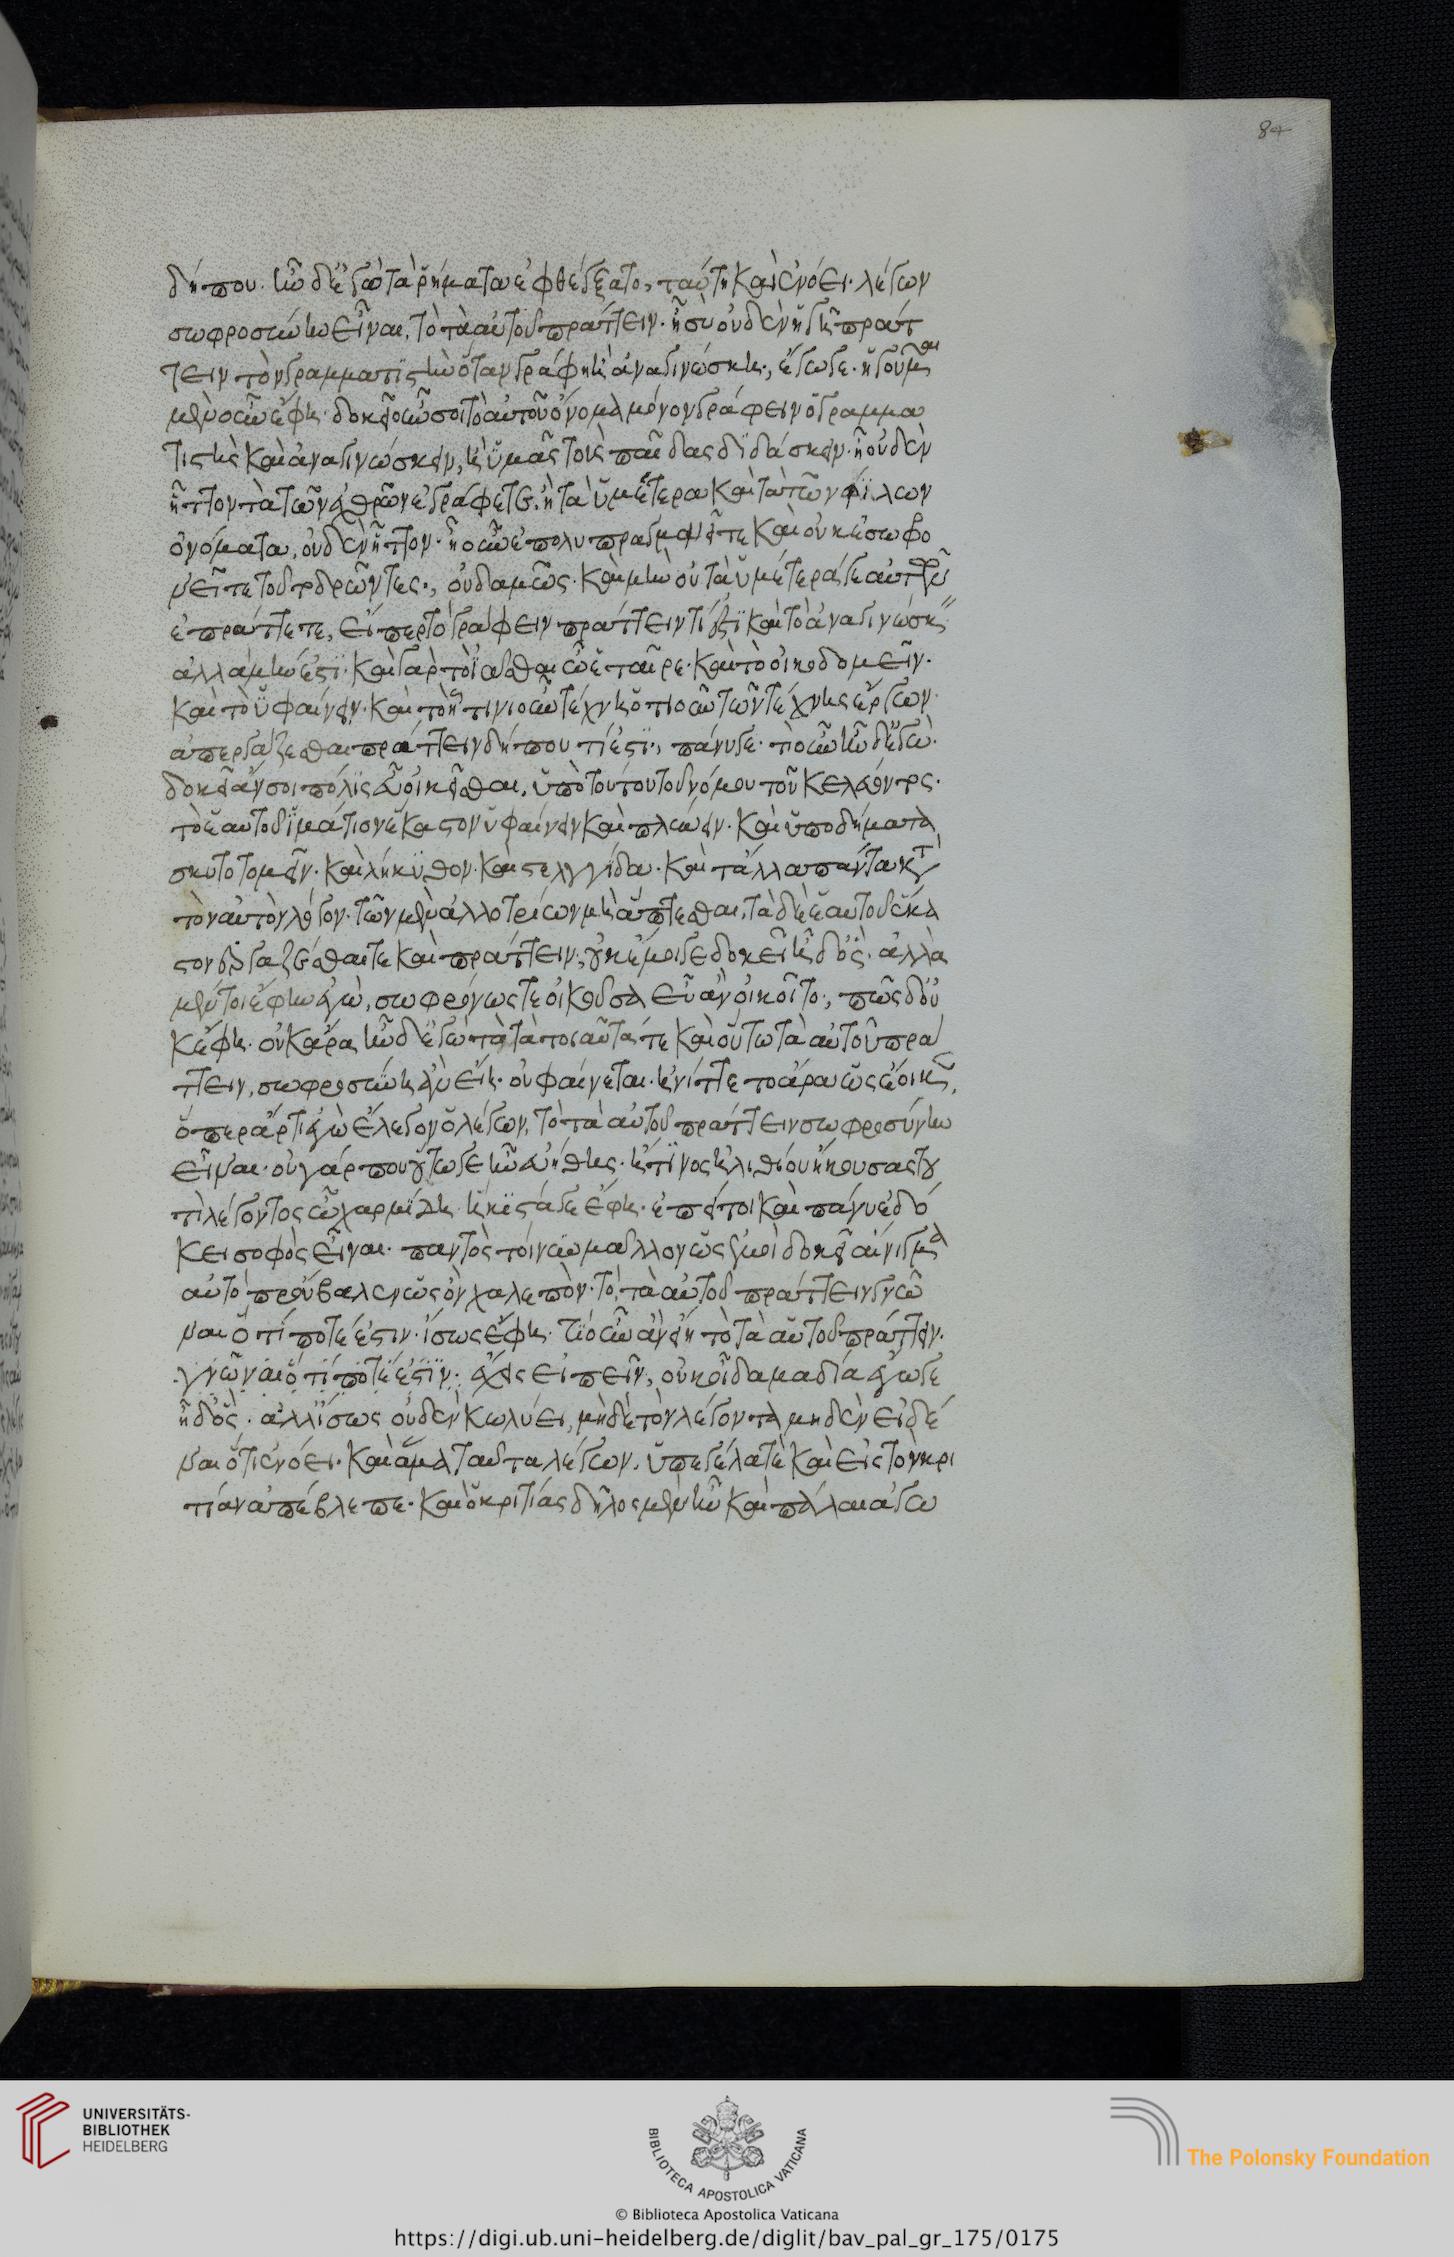 δήπου. ἦν δ' ἐγὼ τὰ ῥήματα ἐφθέγξατο, ταύτη καὶ ἐνόει. λέγων
σωφροσύνην εἶναι, τὸ τὰ αὑτοῦ πράττειν. ἢ σὺ οὐδὲν ἡγῆ πράτ
τειν τὸν γραμματιστὴν ὅταν γράφη ἢ ἀναγινώσκη., ἔγωγε. ἡγοῦμαι
μὲν οὖν ἔφη. δοκεῖ οὖν σοι τὸ αὑτοῦ ὄνομα μόνον γράφειν ὁ γραμμα
τιστὴς καὶ ἀναγινώσκειν, ἢ ὑμᾶς τοὺς παῖδας διδάσκειν. ἢ οὐδὲν
ἧττον τὰ τῶν ἐχθρῶν ἐγράφετε, ἢ τὰ ὑμέτερα καὶ τὰ τῶν φίλων
ὀνόματα, οὐδὲν ἧττον. ἢ οὖν ἐπολυπραγμονεῖτε καὶ οὐκ ἐσωφρο
νεῖτε τοῦτο δρῶντες., οὐδαμῶς. καὶ μὴν οὐ τὰ ὑμέτερά γε αὐτῶν
ἐπράττετε, εἴπερ τὸ γράφειν πράττειν τί ἐστι καὶ τὸ ἀναγινώσκειν
ἀλλὰ μὴν ἔστι. καὶ γὰρ τὸ ἰᾶσθαι ὦ ἑταῖρε. καὶ τὸ οἰκοδομεῖν.
καὶ τὸ ὑφαίνειν. καὶ τὸ ἡτινιοῦν τέχνη ὁτιοῦν τῶν τέχνης ἔργων
ἀπεργάζεσθαι πράττειν δήπου τί ἐστι., πάνυ γε. τί οὖν ἦν δ' ἐγώ.
δοκεῖ ἄν σοι πόλις εὖ οἰκεῖσθαι, ὑπὸ τούτου τοῦ νόμου τοῦ κελεύοντος.
τὸ ἑαυτοῦ ἱμάτιον ἕκαστον ὑφαίνειν καὶ πλύνειν. καὶ ὑποδήματα
σκυτοτομεῖν. καὶ λήκυθον. καὶ στελγγίδα. καὶ τἄλλα πάντα κατὰ
τὸν αὐτὸν λόγον. τῶν μὲν ἀλλοτρίων μὴ ἅπτεσθαι, τὰ δὲ ἑαυτοῦ ἕκα
στον ἐργάζεσθαί τε καὶ πράττειν., οὐκ ἔμοιγε δοκεῖ ἦ δ' ὅς. ἀλλὰ
μέντοι ἔφην ἐγὼ, σωφρόνως τε οἰκοῦσα εὖ ἂν οἰκοῖτο., πῶς δ' οὐ
κ ἔφη. οὐκ ἄρα ἦν δ' ἐγὼ τὸ τὰ τοιαῦτά τε καὶ οὕτω τὰ αὑτοῦ πρά
ττειν, σωφροσύνη ἂν εἴη. οὐ φαίνεται. ἠνίττετο ἄρα ὡς ἔοικεν,
ὅπερ ἄρτι ἐγὼ ἔλεγον ὁ λέγων, τὸ τὰ αὑτοῦ πράττειν σωφροσύνην
εἶναι. οὐ γάρ που οὕτω γε ἦν εὐήθης. ἤ τινος ἠλιθίου ἤκουσας του
τὶ λέγοντος ὦ χαρμίδη. ἥκιστά γε ἔφη. ἐπεί τοι καὶ πάνυ ἐδό
κει σοφὸς εἶναι. παντὸς τοίνυν μᾶλλον ὡς ἐμοὶ δοκεῖ αἴνιγμα
αὐτὸ προύβαλεν ὡς ὂν χαλεπὸν. τὸ τὰ αὑτοῦ πράττειν γνῶ
ναι ὅ τί ποτέ ἐστιν. ἴσως ἔφη. τί οὖν ἂν εἴη τὸ τὰ αὑτοῦ πράττειν.
γνῶναι ὅ τί ποτέ ἐστιν. ἔχεις εἰπεῖν, οὐκ οἶδα μὰ δία ἔγωγε
ἦ δ' ὅς. ἀλλ' ἴσως οὐδὲν κωλύει, μηδὲ τὸν λέγοντα μηδὲν εἰδέ
ναι ὅτι ἐνόει. καὶ ἅμα ταῦτα λέγων, ὑπεγέλα τὲ καὶ εἰς τὸν κρι
τίαν ἀπέβλεπε. καὶ ὁ κριτίας δῆλος μὲν ἦν καὶ πάλαι ἀγω
84
UNIVERSITÄTS-
BIBLIOTHEK
HEIDELBERG
BIBLIOTECA APOSTOLICA VATICANA
The Polonsky Foundation
© Biblioteca Apostolica Vaticana
https://digi.ub.uni-heidelberg.de/diglit/bav_pal_gr_175/0175